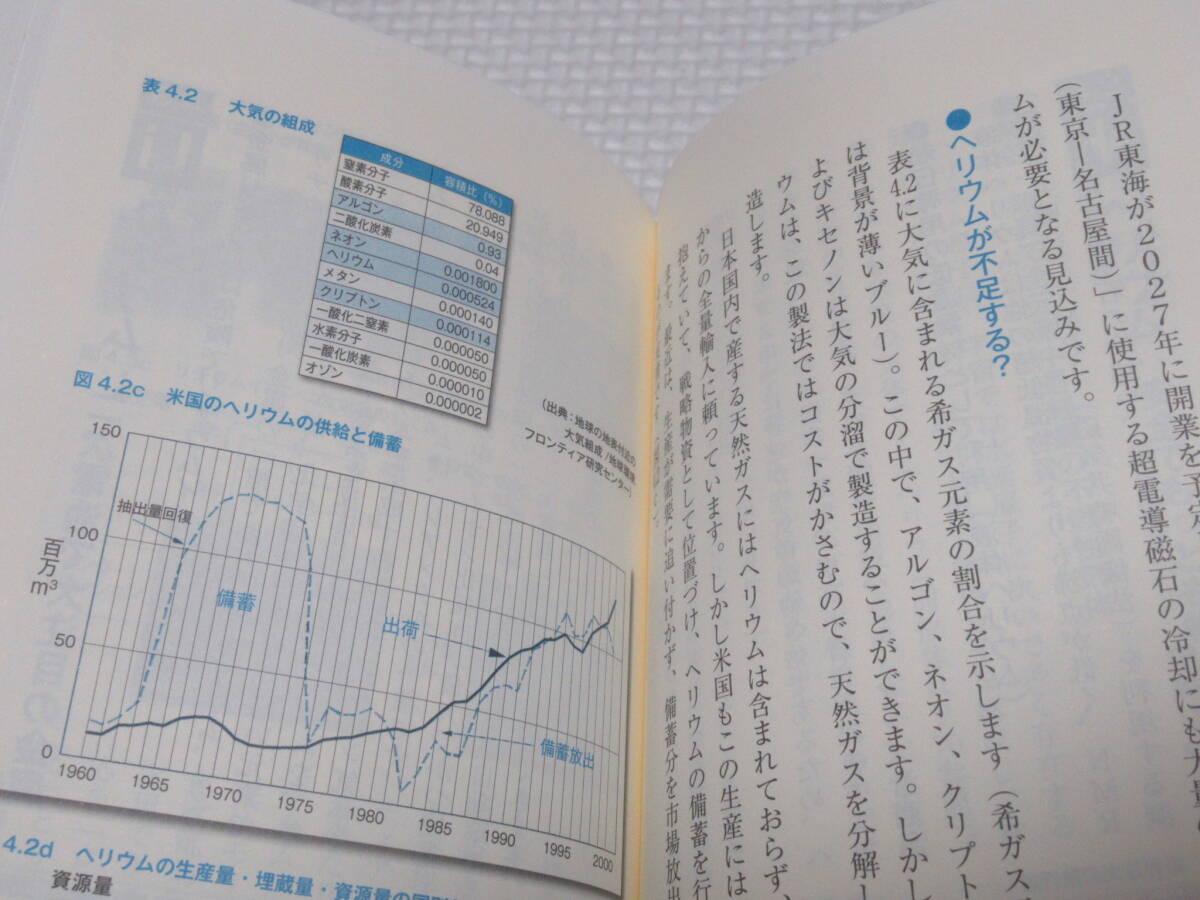 JR東海が2027年に開業を予定
(東京ー名古屋間)」に使用する超電導磁石の冷却にも大量の
ムが必要となる見込みです。
●ヘリウムが不足する?
表4.2に大気に含まれる希ガス元素の割合を示します(希ガス
は背景が薄いブルー)。この中で、アルゴン、ネオン、クリプト
よびキセノンは大気の分溜で製造することができます。しかし
ウムは、この製法ではコストがかさむので、天然ガスを分解
造します。
日本国内で産する天然ガスにはヘリウムは含まれておらず、
からの全量輸入に頼っています。しかし米国もこの生産には
抱えていて、戦略物資として位置づけ、ヘリウムの備蓄を行
ます。最近は、生産が需要に追い付かず、備蓄分を市場放出
表4.2 大気の組成
成分 容積比(%)
窒素分子 78.088
酸素分子 20.949
アルゴン 0.93
二酸化炭素 0.04
ネオン 0.001800
ヘリウム 0.000524
メタン 0.000140
クリプトン 0.000114
一酸化二窒素 0.000050
水素分子 0.000050
一酸化炭素 0.000010
オゾン 0.000002
(出典:地球の地表付近の
大気組成/地球環境
フロンティア研究センター)
図4.2c 米国のヘリウムの供給と備蓄
150
100
50
0
百万m³
抽出量回復
備蓄
出荷
備蓄放出
1960 1965 1970 1975 1980 1985 1990 1995 2000
4.2d ヘリウムの生産量・埋蔵量・資源量の国別
資源量